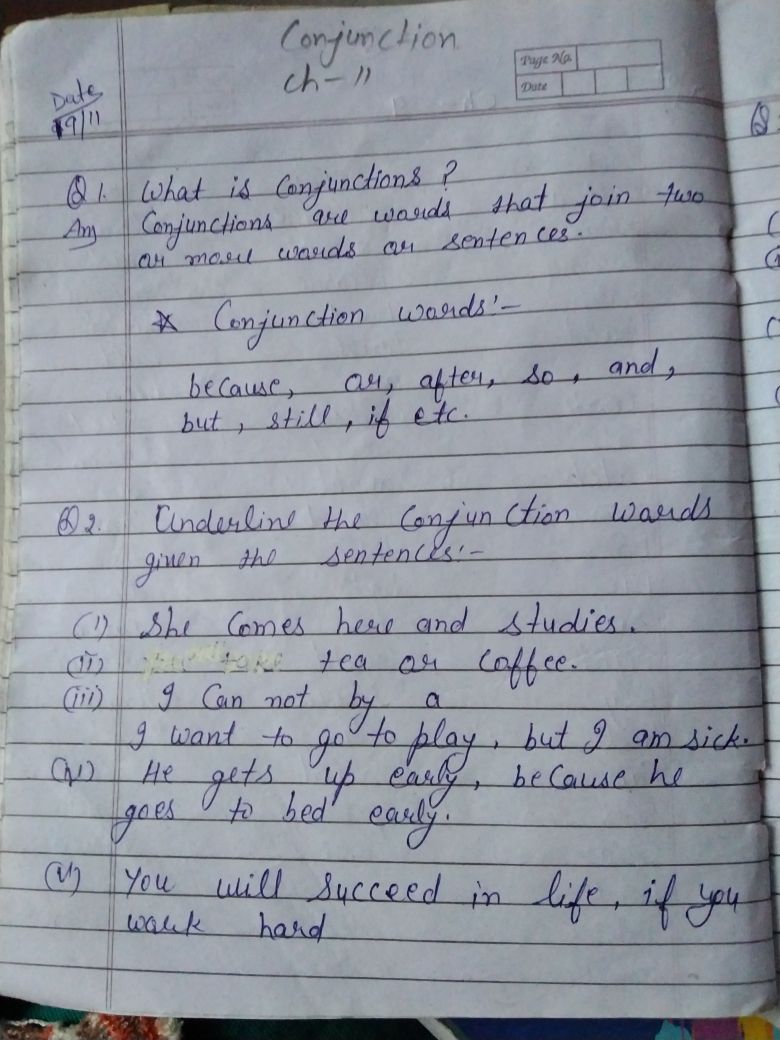 Conjunction
Ch - 11
Page No.
Date
Date
19/11
Q 1. What is Conjunctions ?
Ans Conjunctions are words that join two
or more words or sentences.
* Conjunction words:-
because, or, after, so, and,
but, still, if etc.
Q 2. Underline the Conjunction words
given the sentences:-
(i) She Comes here and studies.
(ii) take tea or Coffee.
(iii) I Can not by a
I want to go to play, but I am sick.
(iv) He gets up early, because he
goes to bed early.
(v) You will Succeed in life, if you
work hard